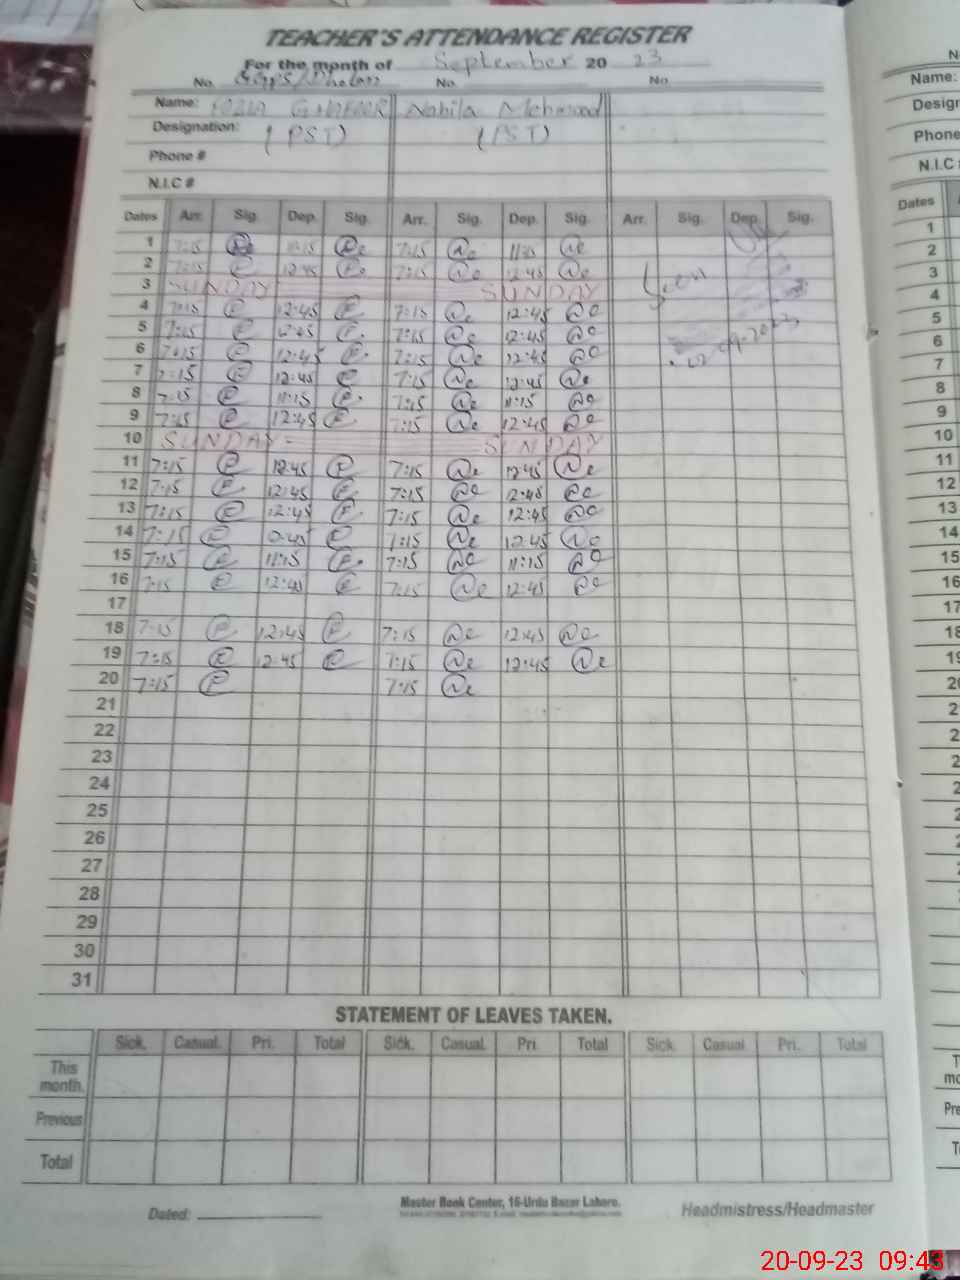 TEACHER'S ATTENDANCE REGISTER
For the month of September 20 23
No. GGPS/Dholan No. No.
Name: FOZIA GHAFOOR Nabila Mehmood
Designation: (PST) (PST)
Phone #
N.I.C #
Dates Arr. Sig. Dep. Sig. Arr. Sig. Dep. Sig. Arr. Sig. Dep. Sig.
1 7:15 11:15 7:15 Ne 11:15 Ne
2 7:15 12:45 7:15 Ne 12:45 Ne
3 SUNDAY SUNDAY
4 7:15 P 12:45 P 7:15 Ne 12:45 Ne Seen
5 7:15 P 12:45 P. 7:15 Ne 12:45 Ne
6 7:15 P 12:45 P. 7:15 Ne 12:45 Ne
7 7:15 P 12:45 P 7:15 Ne 12:45 Ne
8 7:15 P 11:15 P. 7:15 Ne 11:15 Ne
9 7:15 P 12:45 P 7:15 Ne 12:45 Ne
10 SUNDAY SUNDAY
11 7:15 P 12:45 P 7:15 Ne 12:45 Ne
12 7:15 P 12:45 P 7:15 Ne 12:45 Ne
13 7:15 P 12:45 P 7:15 Ne 12:45 Ne
14 7:15 P 12:45 P 7:15 Ne 12:45 Ne
15 7:15 P 11:15 P. 7:15 Ne 11:15 Ne
16 7:15 P 12:45 P 7:15 Ne 12:45 Ne
17
18 7:15 P 12:45 P 7:15 Ne 12:45 Ne
19 7:15 P 12:45 P 7:15 Ne 12:45 Ne
20 7:15 P 7:15 Ne
21
22
23
24
25
26
27
28
29
30
31
STATEMENT OF LEAVES TAKEN.
Sick. Casual. Pri. Total Sick. Casual. Pri. Total Sick. Casual Pri. Total
This month.
Previous
Total
Master Book Center, 16-Urdu Bazar Lahore.
Dated: Headmistress/Headmaster
20-09-23 09:43